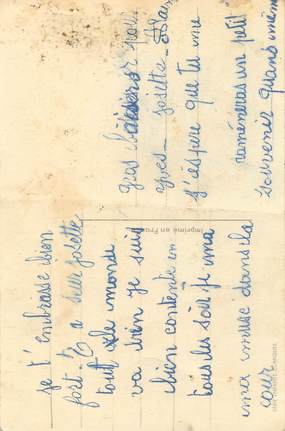 je t'embrasse bien
fort. a seur josette
tout le monde
va bien je suis
bien contente
tous les soir je
ma muse dans la
cour
gros baisers
yves - josette
j'éspere que tu me
ramèneras un petit
souvenir quand même
Imprimé en France